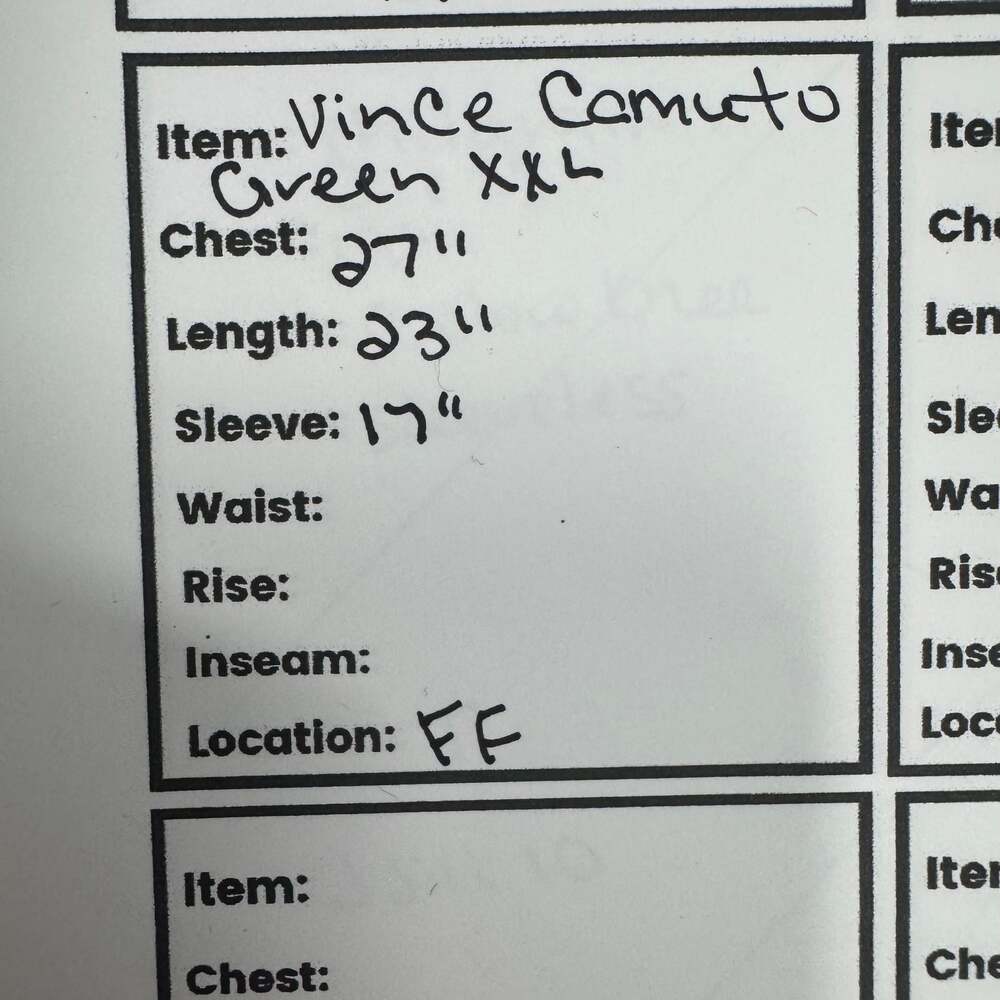 Item: Vince Camuto
Green XXL
Chest: 27"
Length: 23"
Sleeve: 17"
Waist:
Rise:
Inseam:
Location: FF
Item:
Chest:
Ite
Che
Len
Slee
Wa
Rise
Inse
Loca
Iter
Che